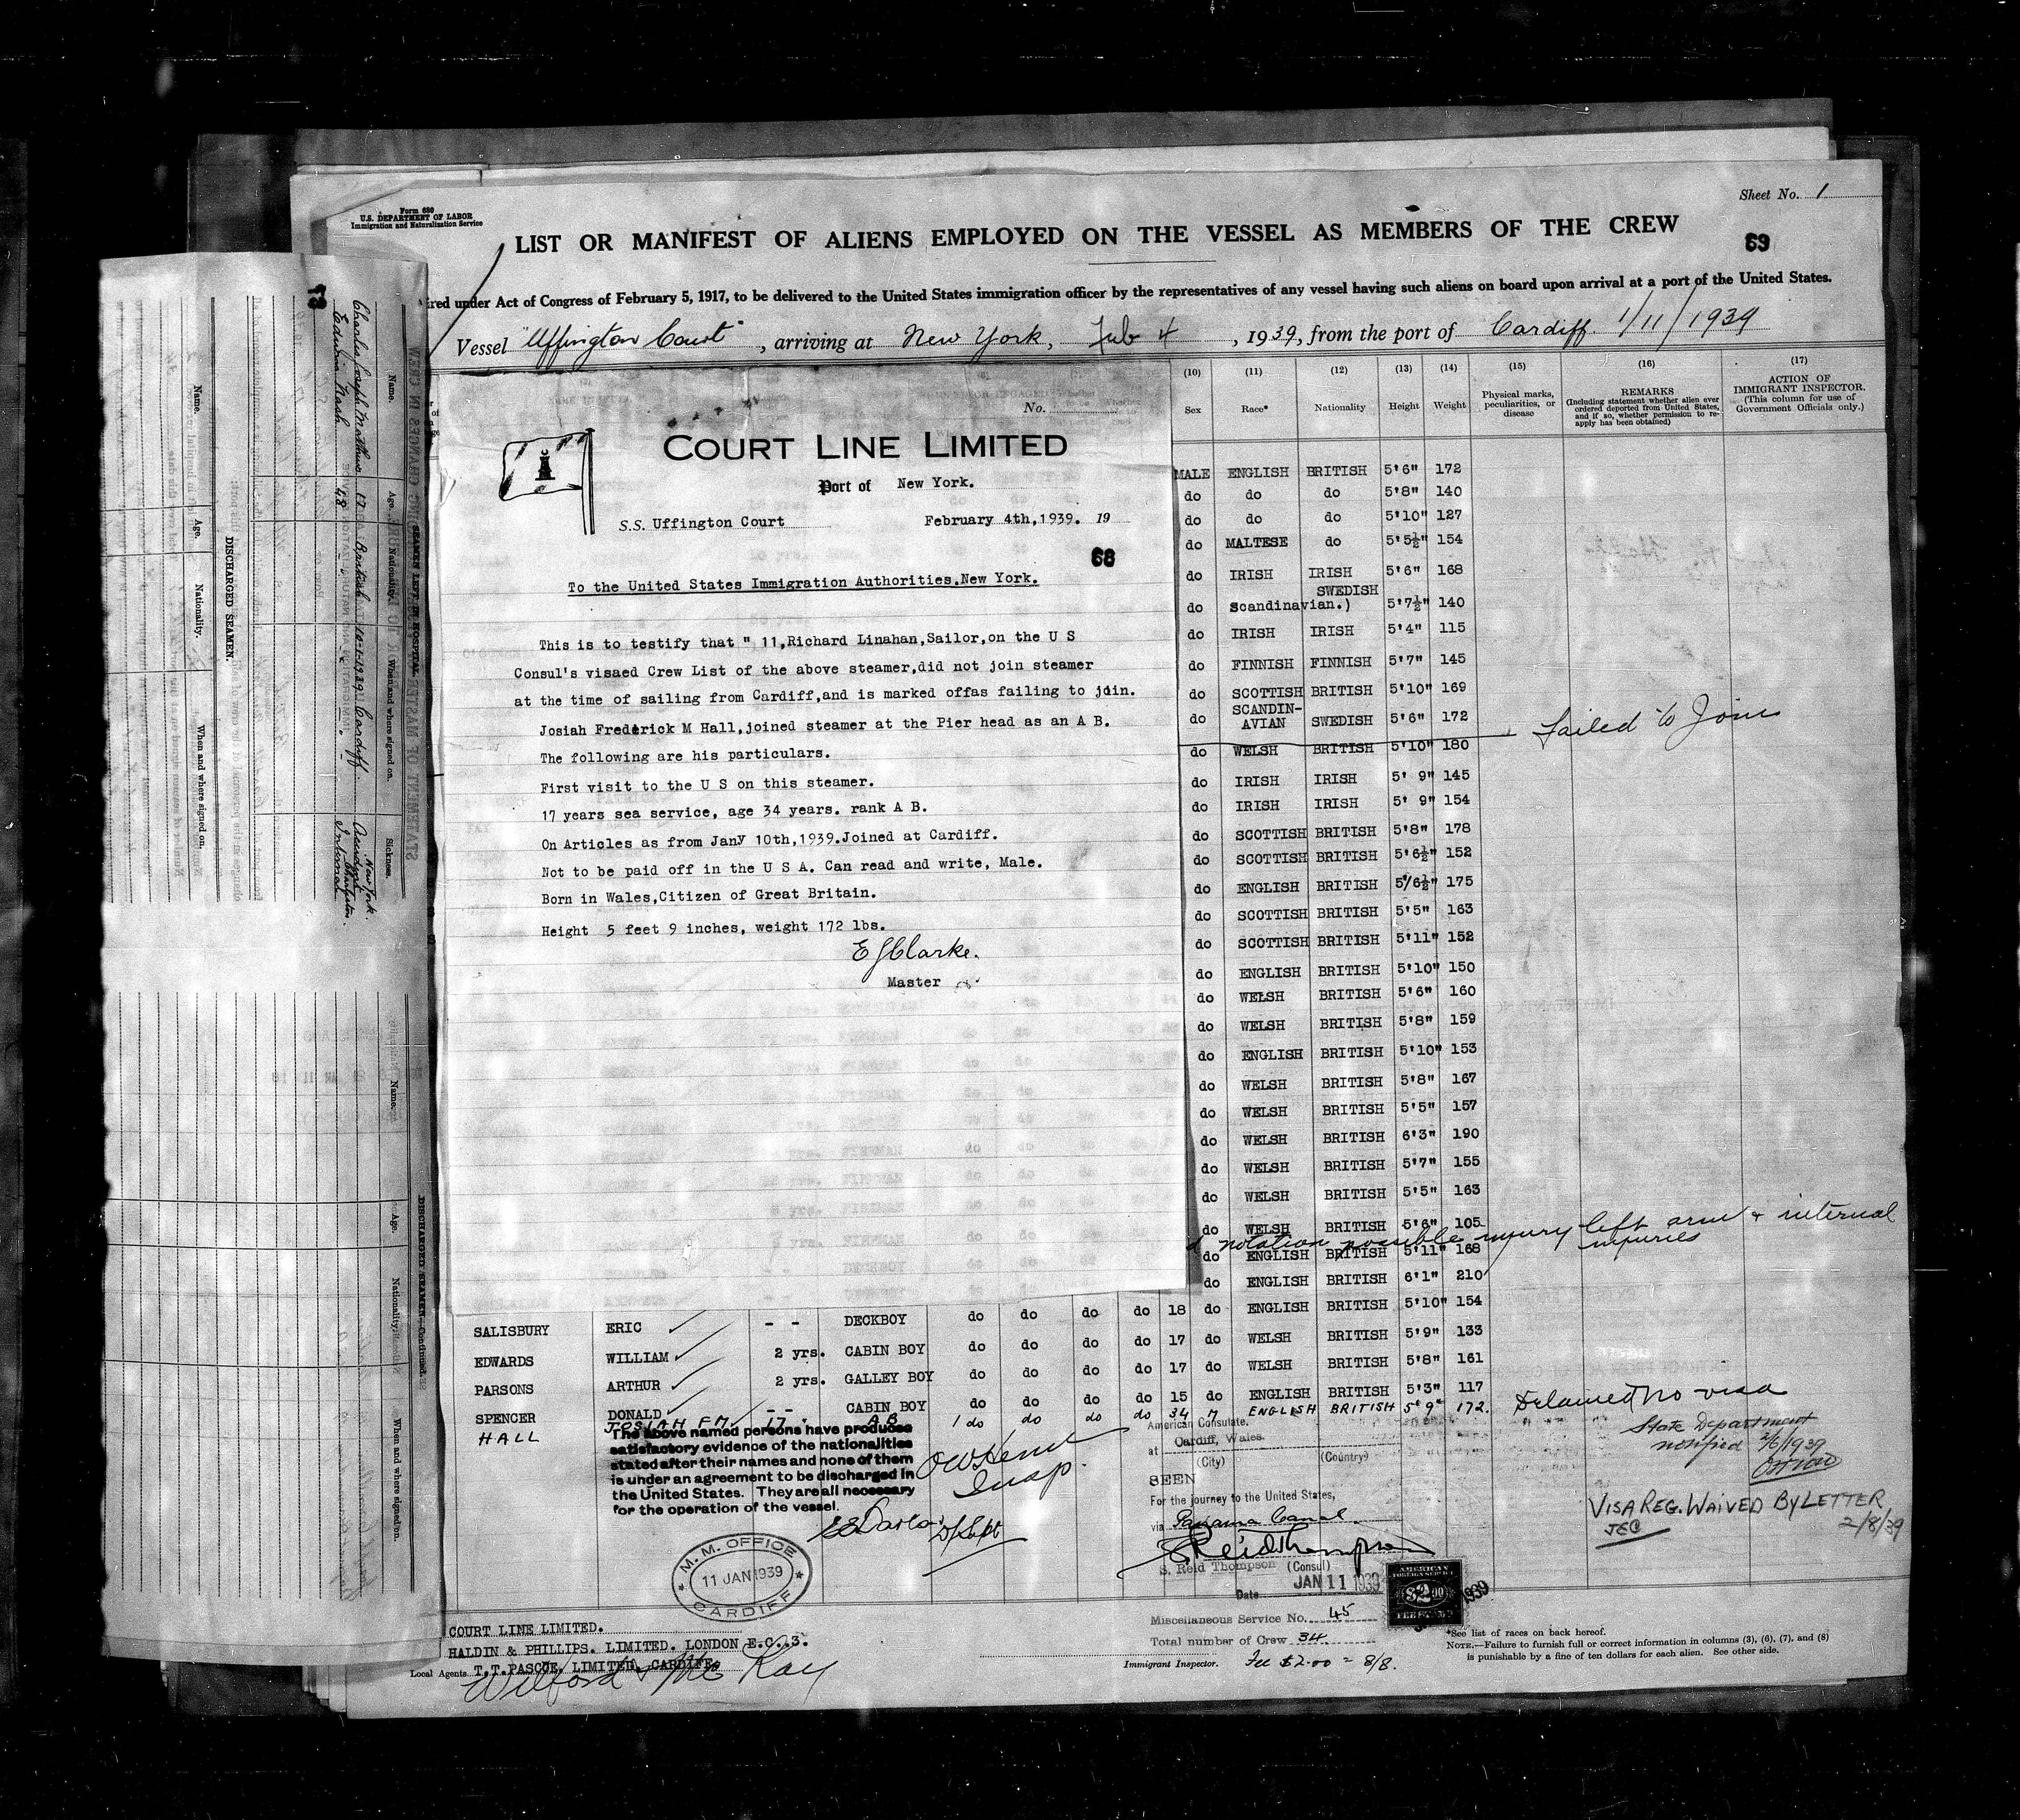 Form 680
U.S. DEPARTMENT OF LABOR
Immigration and Naturalization Service
Sheet No. 1
LIST OR MANIFEST OF ALIENS EMPLOYED ON THE VESSEL AS MEMBERS OF THE CREW
69
ired under Act of Congress of February 5, 1917, to be delivered to the United States immigration officer by the representatives of any vessel having such aliens on board upon arrival at a port of the United States.
Vessel "Uffington Court", arriving at New York, Feb 4, 1939, from the port of Cardiff 1/11/1939
(10) (11) (12) (13) (14) (15) (16) (17)
Sex Race* Nationality Height Weight
Physical marks, peculiarities, or disease
REMARKS
(Including statement whether alien ever ordered deported from United States, and if so, whether permission to reapply has been obtained)
ACTION OF IMMIGRANT INSPECTOR.
(This column for use of Government Officials only.)
No.
COURT LINE LIMITED
Port of New York.
S.S. Uffington Court February 4th,1939. 19
68
To the United States Immigration Authorities.New York.
This is to testify that " 11,Richard Linahan,Sailor,on the U S
Consul's visaed Crew List of the above steamer,did not join steamer
at the time of sailing from Cardiff,and is marked offas failing to join.
Josiah Frederick M Hall,joined steamer at the Pier head as an A B.
The following are his particulars.
First visit to the U S on this steamer.
17 years sea service, age 34 years. rank A B.
On Articles as from Jany 10th,1939.Joined at Cardiff.
Not to be paid off in the U S A. Can read and write, Male.
Born in Wales,Citizen of Great Britain.
Height 5 feet 9 inches, weight 172 lbs.
E J Clarke.
Master
MALE ENGLISH BRITISH 5'6" 172
do do do 5'8" 140
do do do 5'10" 127
do MALTESE do 5'5½" 154
do IRISH IRISH 5'6" 168
do Scandinavian.) SWEDISH 5'7½" 140
do IRISH IRISH 5'4" 115
do FINNISH FINNISH 5'7" 145
do SCOTTISH BRITISH 5'10" 169
do SCANDIN-AVIAN SWEDISH 5'6" 172
do WELSH BRITISH 5'10" 180 Failed to Join
do IRISH IRISH 5' 9" 145
do IRISH IRISH 5' 9" 154
do SCOTTISH BRITISH 5'8" 178
do SCOTTISH BRITISH 5'6½" 152
do ENGLISH BRITISH 5'/6½" 175
do SCOTTISH BRITISH 5'5" 163
do SCOTTISH BRITISH 5'11" 152
do ENGLISH BRITISH 5'10" 150
do WELSH BRITISH 5'6" 160
do WELSH BRITISH 5'8" 159
do ENGLISH BRITISH 5'10" 153
do WELSH BRITISH 5'8" 167
do WELSH BRITISH 5'5" 157
do WELSH BRITISH 6'3" 190
do WELSH BRITISH 5'7" 155
do WELSH BRITISH 5'5" 163
do WELSH BRITISH 5'6" 105
notation possible injury left arm & internal injuries
do ENGLISH BRITISH 5'11" 168
do ENGLISH BRITISH 6'1" 210
SALISBURY ERIC - - DECKBOY do do do do 18 do ENGLISH BRITISH 5'10" 154
EDWARDS WILLIAM 2 yrs. CABIN BOY do do do do 17 do WELSH BRITISH 5'9" 133
PARSONS ARTHUR 2 yrs. GALLEY BOY do do do do 17 do WELSH BRITISH 5'8" 161
SPENCER DONALD - - CABIN BOY do do do do 15 do ENGLISH BRITISH 5'3" 117
HALL JOSIAH F M 17 " AB 1 do do do do 34 M ENGLISH BRITISH 5'9" 172. Detained No visa
State Department
notified 2/6/1939
VISA REG. WAIVED BY LETTER
JEC 2/8/39
The above named persons have produced
satisfactory evidence of the nationalities
stated after their names and none of them
is under an agreement to be discharged in
the United States. They are all necessary
for the operation of the vessel.
Insp.
M. M. OFFICE
11 JAN 1939
CARDIFF
American Consulate.
at Cardiff, Wales.
(City) (Country)
SEEN
For the journey to the United States,
via Panama Canal.
S Reid Thompson
S. Reid Thompson (Consul)
Date JAN 11 1939
AMERICAN
FOREIGN SERVICE
$2.00
FEE STAMP
1939
Miscellaneous Service No. 45
Total number of Crew 34
Immigrant Inspector. Fee $2.00 = 8/8.
COURT LINE LIMITED.
HALDIN & PHILLIPS. LIMITED. LONDON E.C..3.
Local Agents T.T.PASCOE. LIMITED. CARDIFF.
Wilford & McKay
*See list of races on back hereof.
NOTE.—Failure to furnish full or correct information in columns (3), (6), (7), and (8)
is punishable by a fine of ten dollars for each alien. See other side.
SEAMEN LEFT IN HOSPITAL
Name. Age. Nationality. When and where signed on. Sickness.
Charles Joseph Mathews 17 British 10-1-1939 Cardiff Accident New York.
Edwin Nash 48 " " " Internal Charleston.
DISCHARGED SEAMEN.
Name. Age. Nationality. When and where signed on.
DISCHARGED SEAMEN—Continued.
Name. Age. Nationality. When and where signed on.